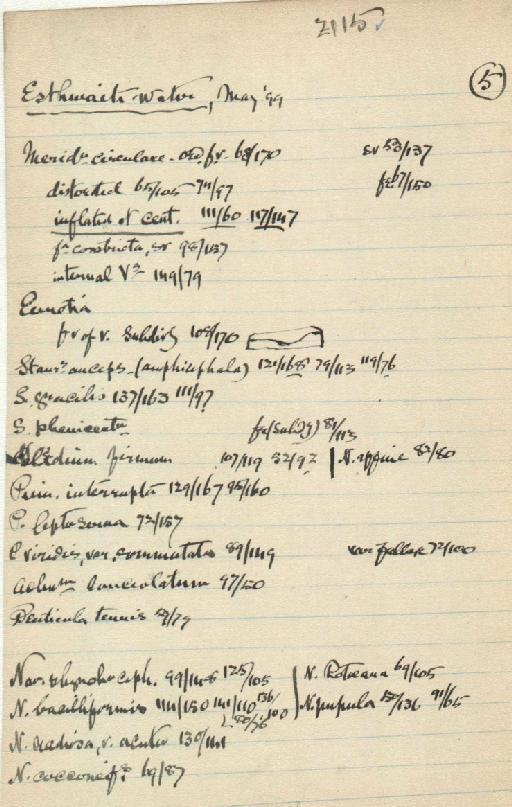 2115
5
Esthwaite Water, May '99
Merid. circulare - ord. fv. 68/170 sv 53/137
distorted 65/105 74/97 fv 67/150
inflated at cent. 111/60 117/147
fa constricta, sv 98/137
internal Vs 149/79
Eunotia
fv of v. 108/170
Staur. anceps (amphicephala) 121/168 79/113 119/76
S. gracilis 137/163 111/97
S. phenicenter 81/113
firmum 107/119 32/92 N. affine 82/80
Pinn. interrupta 129/167 95/160
P. leptosoma 72/157
P. viridis, var. commutata 89/149 var fallax 72/100
Achn. lanceolatum 97/50
Denticula tennis /79
Nav. rhynchoceph. 99/148 125/105 N. Rotaeana 69/105
N. bacilliformis 141/150 141/110 136/100 N. pupula /136 91/65
N. radiosa, v. acuta 130/141
N. 69/87